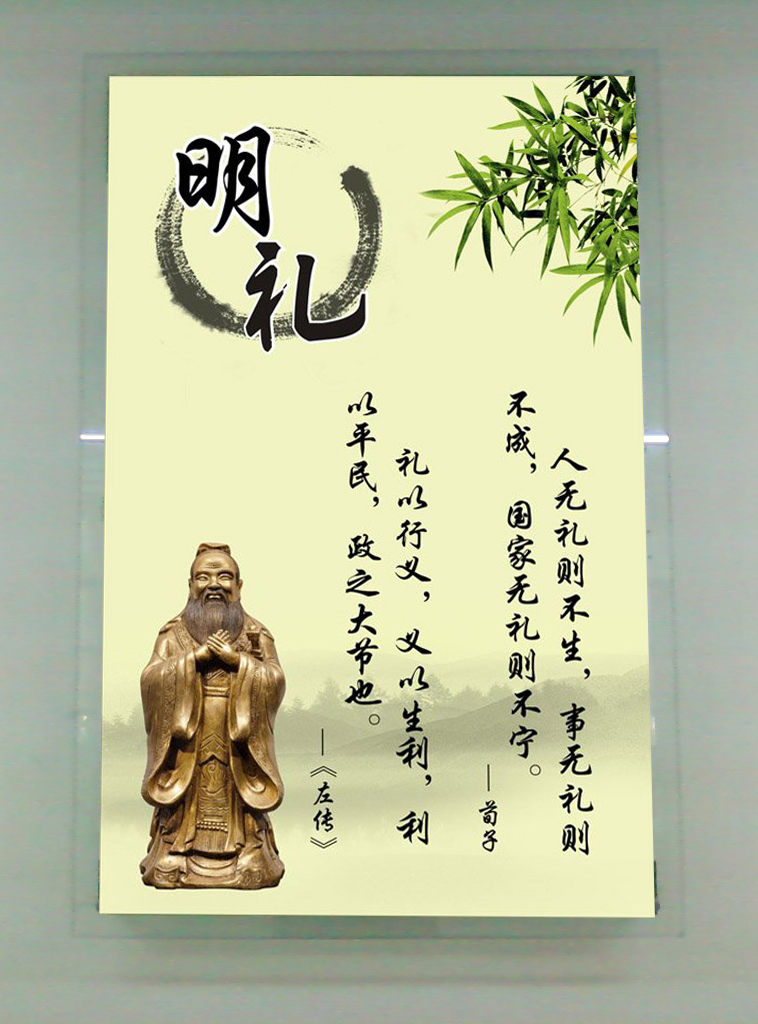 明
礼
人无礼则不生，事无礼则
不成，国家无礼则不宁。
—荀子
礼以行义，义以生利，利
以平民，政之大节也。
—《左传》